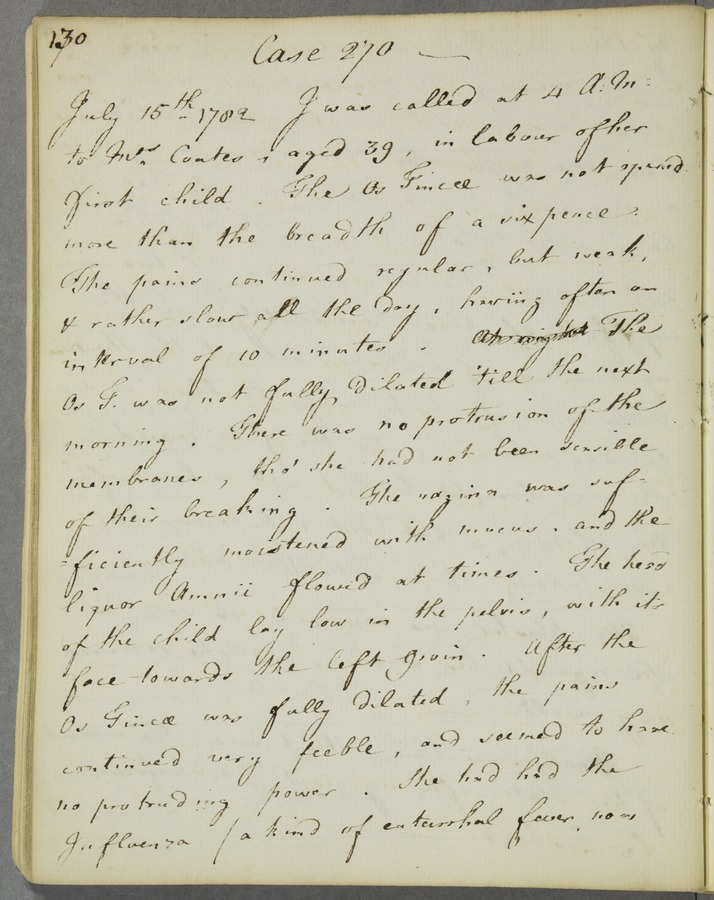 130
Case 270
July 15th 1782 I was called at 4 A:M:
to Mrs Coates, aged 39, in labour of her
first child. The Os Tincæ was not spread
more than the breadth of a sixpence.
The pains continued regular, but weak,
& rather slow all the day, having often an
interval of 10 minutes. The
Os T. was not fully dilated 'till the next
morning. There was no protrusion of the
membranes, tho' she had not been sensible
of their breaking. The vagina was suf-
=ficiently moistened with mucus, and the
liquor Amnii flowed at times. The head
of the child lay low in the pelvis, with its
face towards the left groin. After the
Os Tincæ was fully dilated, the pains
continued very feeble, and seemed to have
no protruding power. She had had the
Influenza (a kind of catarrhal fever now